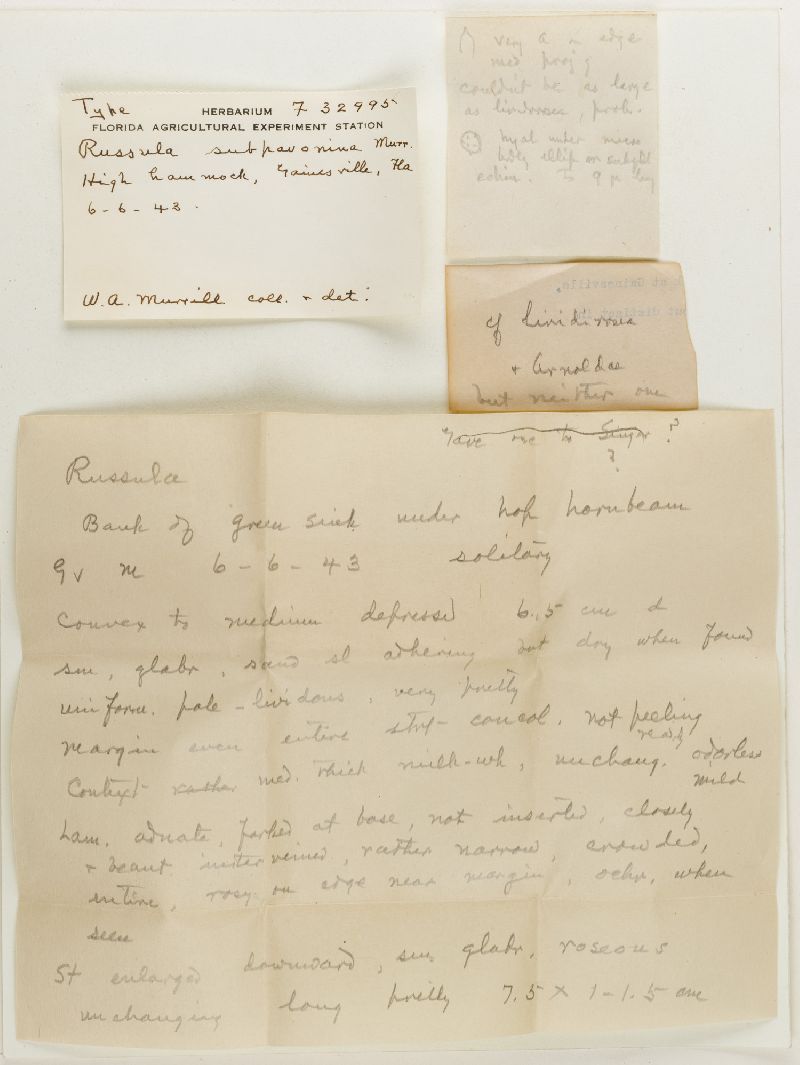 Type HERBARIUM F 32995
FLORIDA AGRICULTURAL EXPERIMENT STATION
Russula subpavonina Murr.
High hammock, Gainesville, Fla
6-6-43.
W.A. Murrill coll. + det.
very edge
med
couldn't be as large
as lividirosea, prob.
hyal under micro
ellip
echin. 9 µ long
at Gainesville.
but distinct
cf lividirosea
+ Arnoldae
but neither one
Gave one to Singer ?
?
Russula
Bank of green sink under hop hornbeam
Gv M 6-6-43 solitary
Convex to medium depressed 6.5 cm d
sm, glabr, sand sl adhering but dry when found
uniform. pale-lividous, very pretty
margin even entire concol. not peeling
readily
Context rather med. thick milk-wh, unchang. odorless
mild
Lam. adnate, forked at base, not inserted, closely
+ beaut interveined, rather narrow, crowded,
entire, rosy on edge near margin, ochr, when
seen
St enlarged downward, sm, glabr, roseous
unchanging long pretty 7.5 x 1-1.5 cm